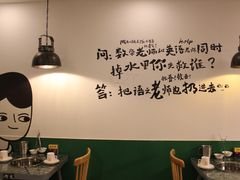 问：数学老师和英语老师同时
掉水里你先救谁？
答：把语文老师也扔进去